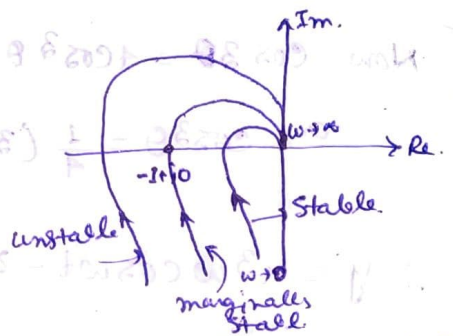 Im.
ω→∞
Re.
-1+j0
Stable
unstable
ω→0
marginally
stable